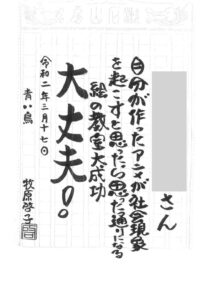 さん
自分が作ったアニメが社会現象
を起こすと思ったら思った通りになる
絵の教室大成功
大丈夫。
令和二年三月十七日
青い鳥
牧原啓子